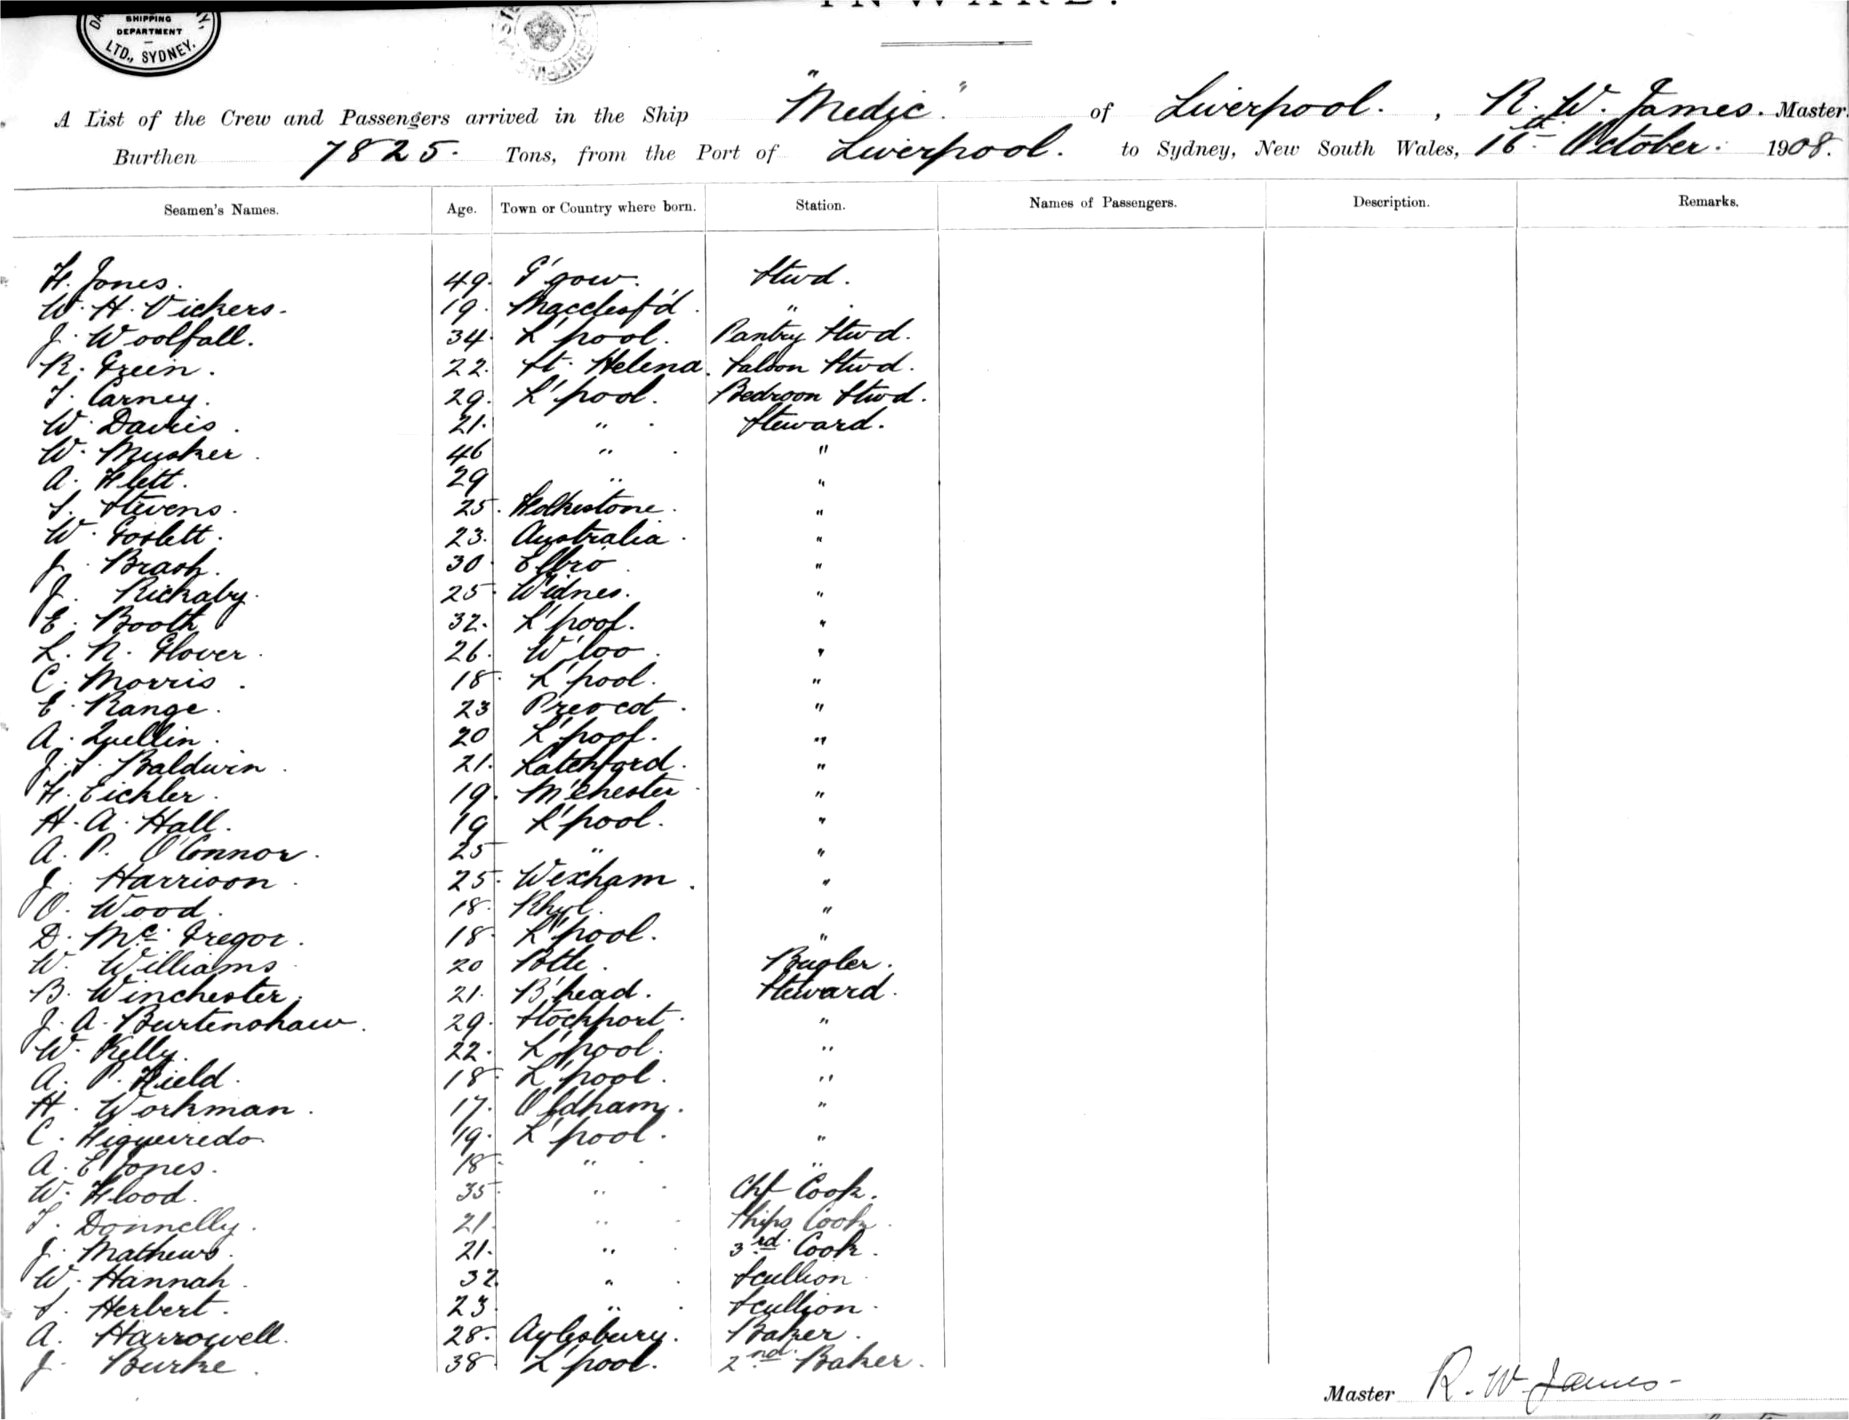 SHIPPING
DEPARTMENT
LTD., SYDNEY.
INWARD.
A List of the Crew and Passengers arrived in the Ship "Medic" of Liverpool. , R. W. James. Master
Burthen 7825. Tons, from the Port of Liverpool. to Sydney, New South Wales, 16th October. 1908.
Seamen's Names. Age. Town or Country where born. Station. Names of Passengers. Description. Remarks.
F. Jones. 49. G'gow. Stwd.
W. H. Vickers. 19. Macclesf'd. "
J. Woolfall. 34. L'pool. Pantry Stwd.
R. Green. 22. St. Helena. Saloon Stwd.
T. Carney. 29. L'pool. Bedroon Stwd.
W. Davies. 21. " Steward.
W. Musker. 46 " "
A. Flett. 29 " "
S. Stevens. 25. Folkestone. "
W. Goslett. 23. Australia. "
J. Brash. 30. "
J. Rickaby. 25. Widnes. "
E. Booth 32. L'pool. "
L. N. Glover. 26. W'loo. "
C. Morris. 18. L'pool. "
E. Range. 23 Prescot. "
A. Quellin. 20 L'pool. "
J. S. Baldwin. 21. Latchford. "
F. Eichler. 19. M'chester "
H. A. Hall. 19 L'pool. "
A. P. O'Connor. 25 " "
J. Harrison. 25. Wexham. "
O. Wood. 18. Rhyl. "
D. McGregor. 18. L'pool. "
W. Williams 20 Bugler.
B. Winchester. 21. B'head. Steward.
J. A. Burtenshaw. 29. Stockport. "
W. Kelly. 22. L'pool. "
A. P. Field. 18. L'pool. "
H. Workman. 17. Oldham. "
C. Figgueiredo 19. L'pool. "
A. E. Jones. 18. " "
W. Flood. 35. " Chf Cook.
T. Donnelly. 21. " Ships Cook.
J. Mathews. 21. " 3rd Cook.
W. Hannah. 32. " Scullion.
S. Herbert. 23. " Scullion.
A. Harrowell. 28. Aylesbury. Baker.
J. Burke. 38. L'pool. 2nd Baker.
Master R. W. James